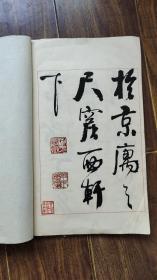 於京寓之
尺窩西軒
下